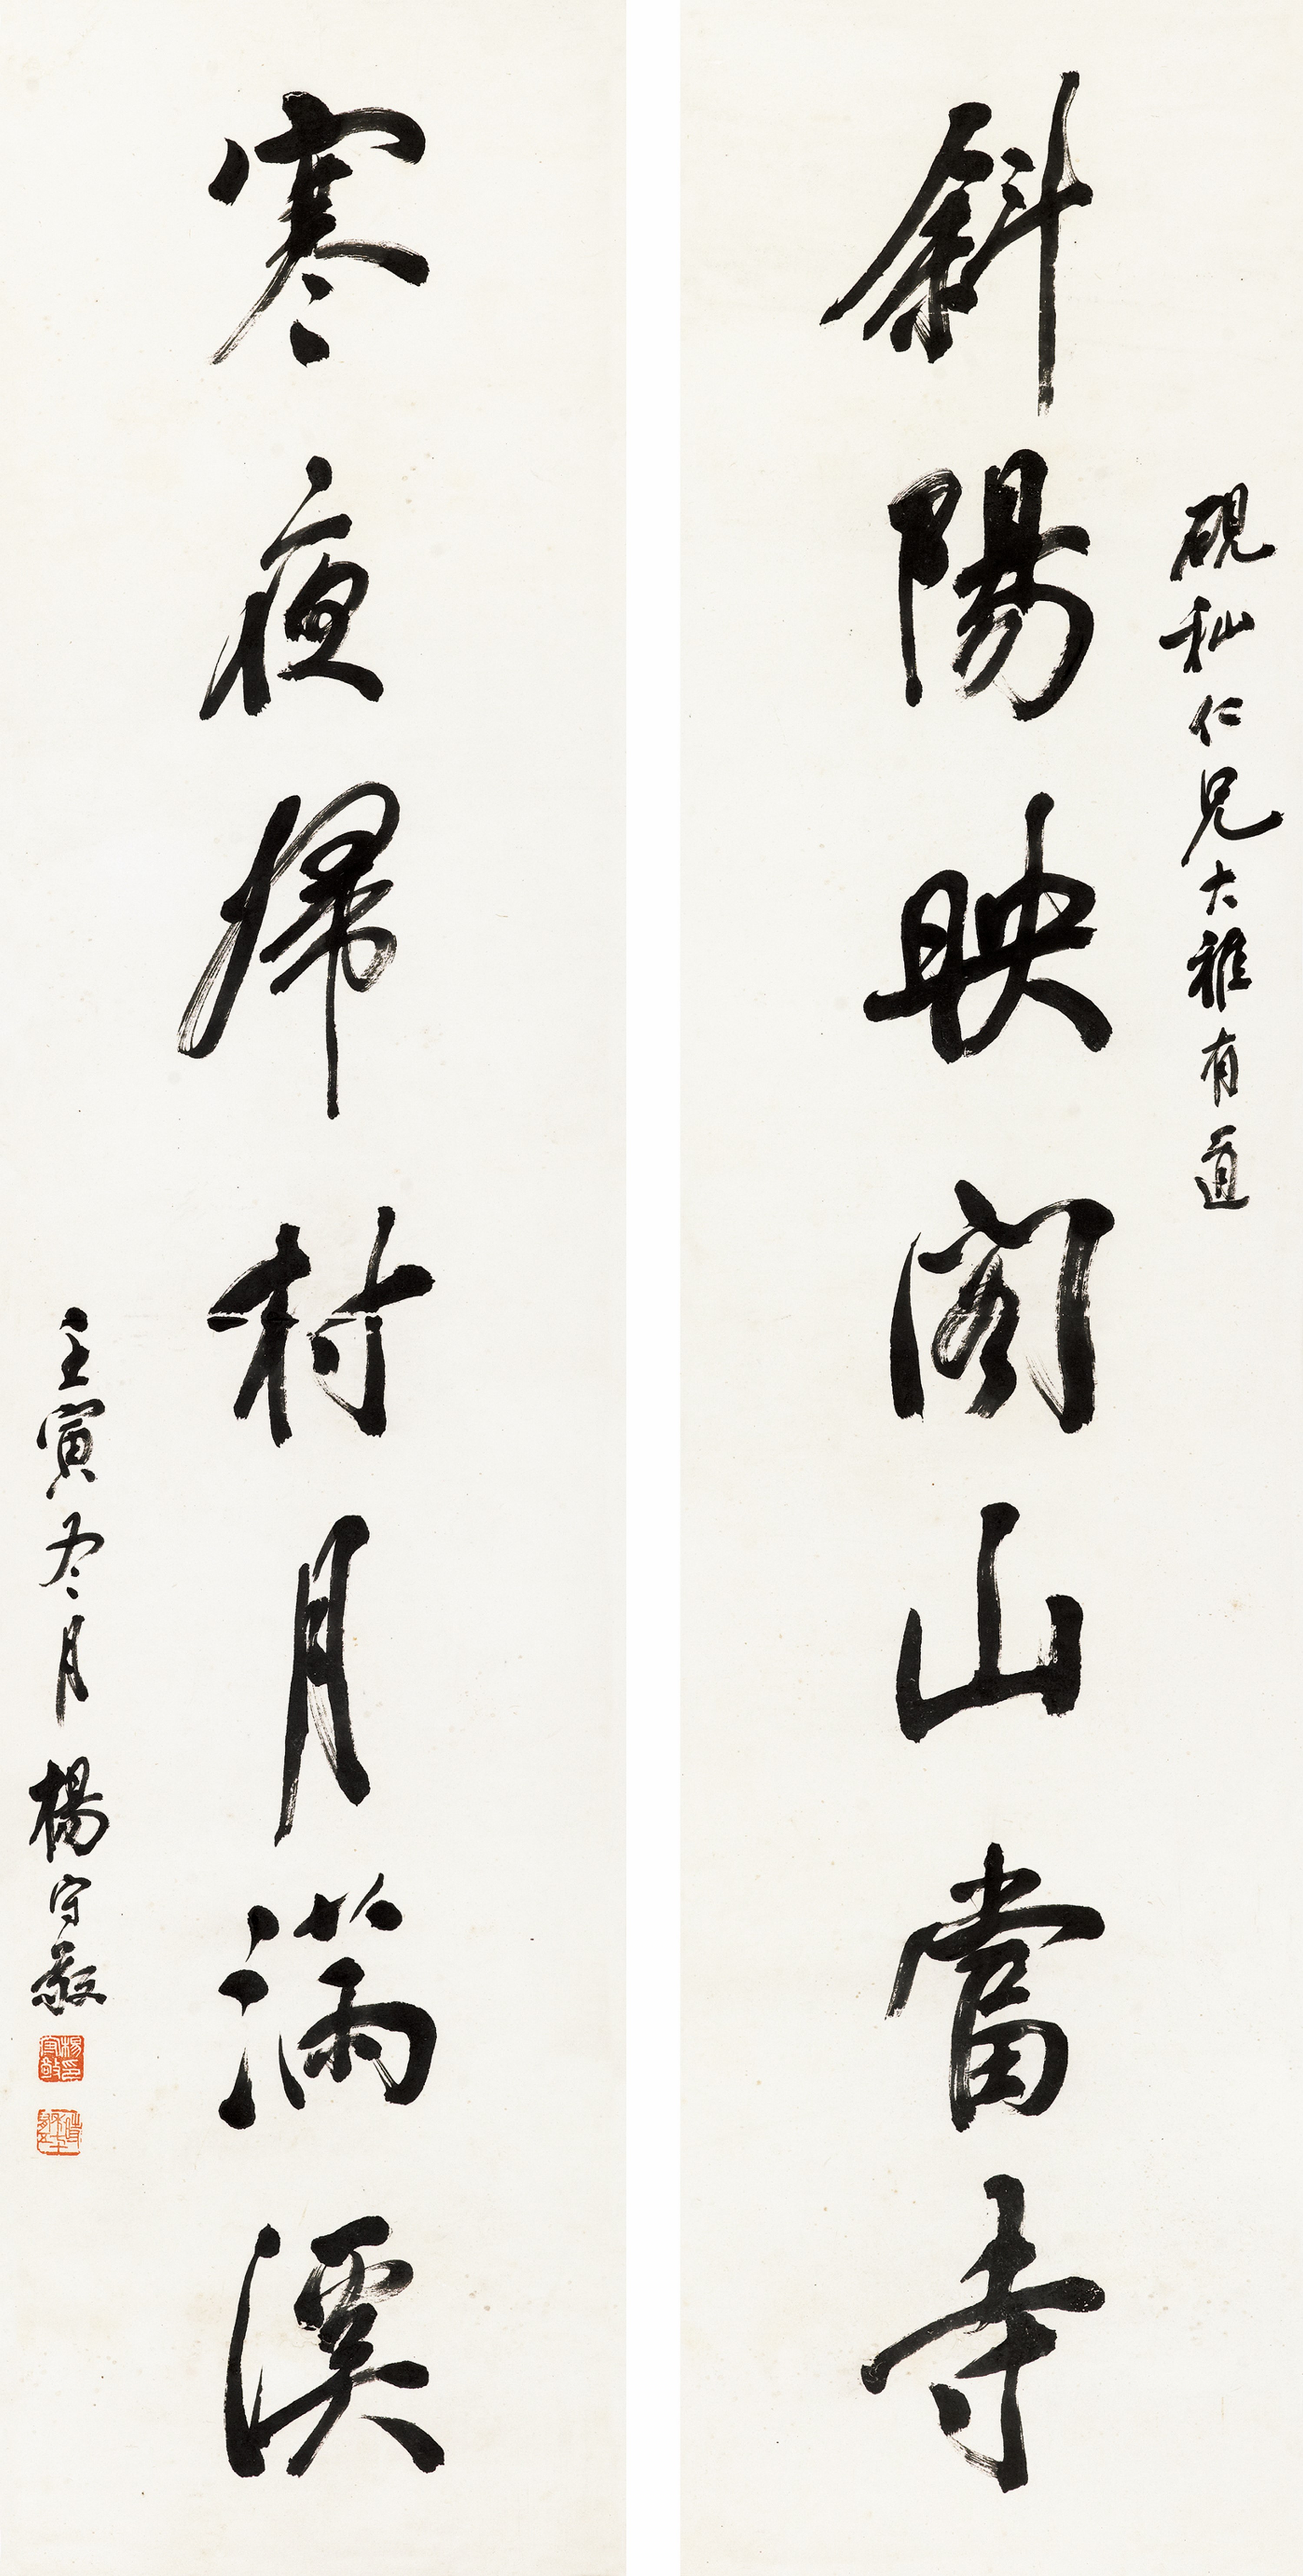 硯秈仁兄大雅有道
斜陽映閣山當寺
寒夜歸村月滿溪
壬寅冬月楊守敬
楊守敬印